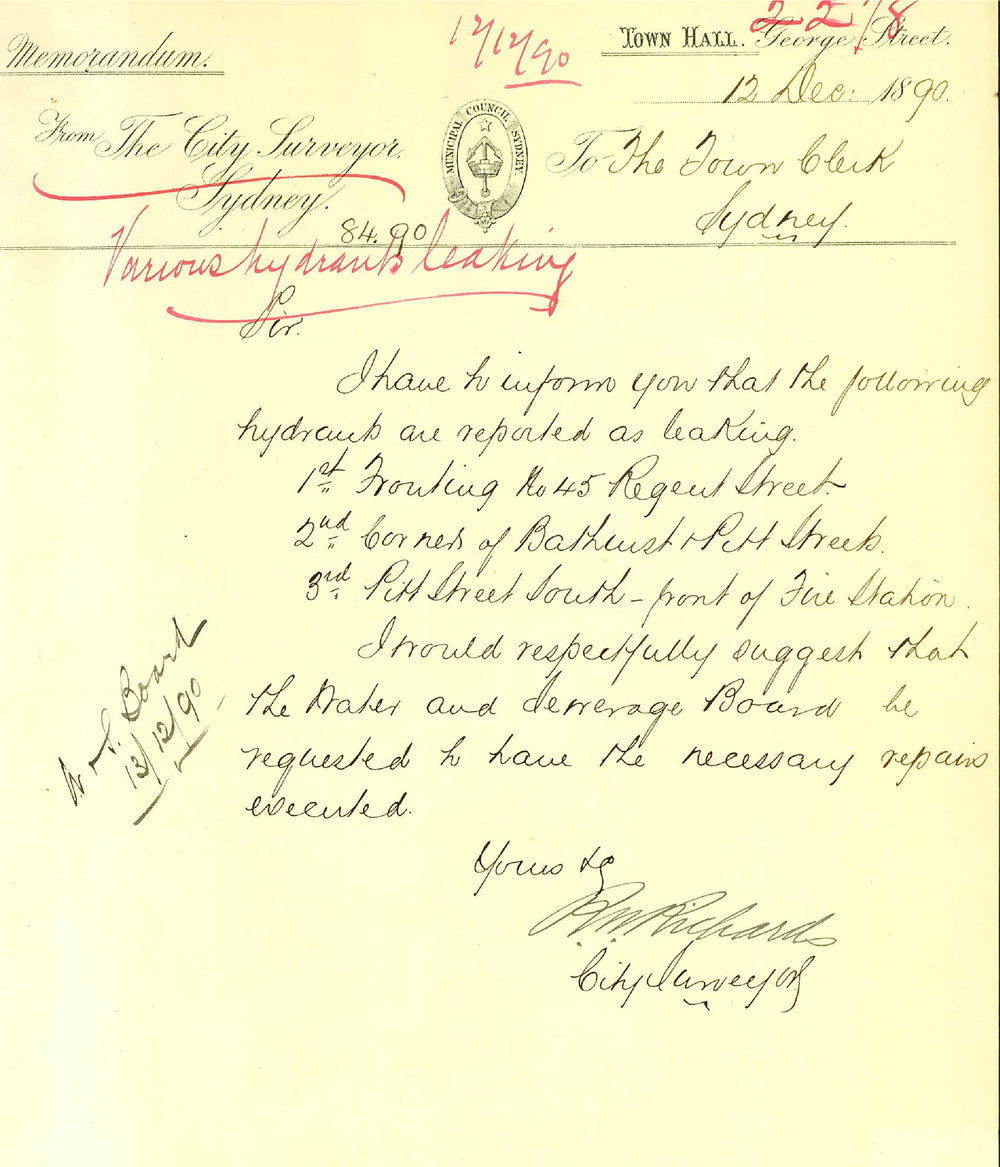 Memorandum.
12/12/90
TOWN HALL. George Street.
12 Dec: 1890.
From The City Surveyor,
Sydney.
MUNICIPAL COUNCIL SYDNEY
To The Town Clerk
Sydney.
84.90
Various hydrants leaking
Sir.
I have to inform you that the following
hydrants are reported as leaking.
1st Fronting No 45 Regent Street.
2nd Corner of Bathurst & Pitt Streets.
3rd Pitt Street South - front of Fire Station.
I would respectfully suggest that
the Water and Sewerage Board be
requested to have the necessary repairs
executed.
W & S. Board
13/12/90
Yours &c
R.W. Richards
City Surveyor